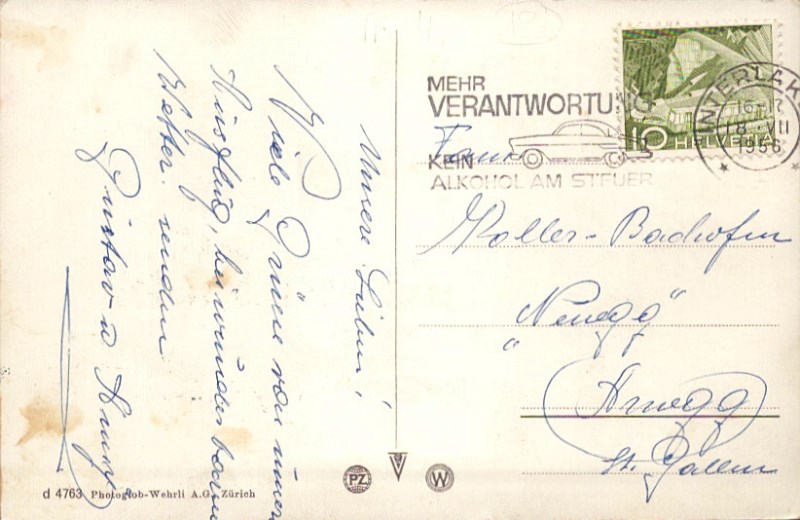 Unsere Lieben!
Viele Grüsse von einem
Ausflug, bei wunderbarem
Wetter. senden
Gustav u
MEHR
VERANTWORTUNG
KEIN
ALKOHOL AM STEUER
INTERLAKEN
18. VII
1956
10 HELVETIA
Fam.
Koller-Bachofen
„Neuegg"
Arnegg
St. Gallen
d 4763 Photoglob-Wehrli A.G. Zürich
PZ
W